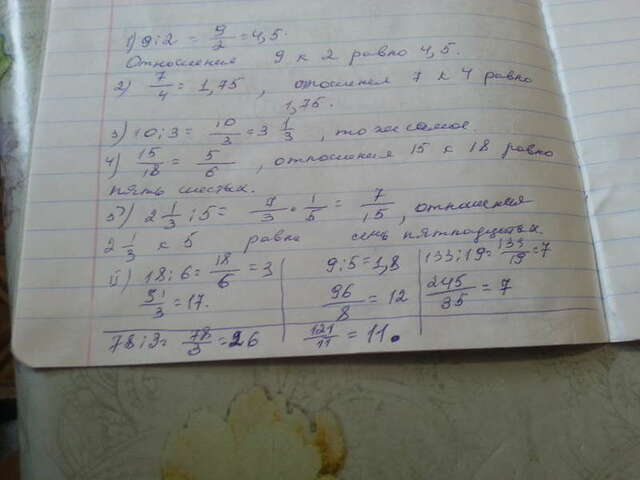 1) 9:2 = 9/2 = 4,5.
Отношения 9 к 2 равно 4,5.
2) 7/4 = 1,75, отношения 7 к 4 равно
1,75.
3) 10:3 = 10/3 = 3 1/3, то же самое.
4) 15/18 = 5/6, отношения 15 к 18 равно
пять шестых.
5) 2 1/3 : 5 = 7/3 · 1/5 = 7/15, отношения
2 1/3 к 5 равно семь пятнадцатых.
II) 18:6 = 18/6 = 3 9:5 = 1,8 133:19 = 133/19 = 7
51/3 = 17. 96/8 = 12 245/35 = 7
78:3 = 78/3 = 26 121/11 = 11.